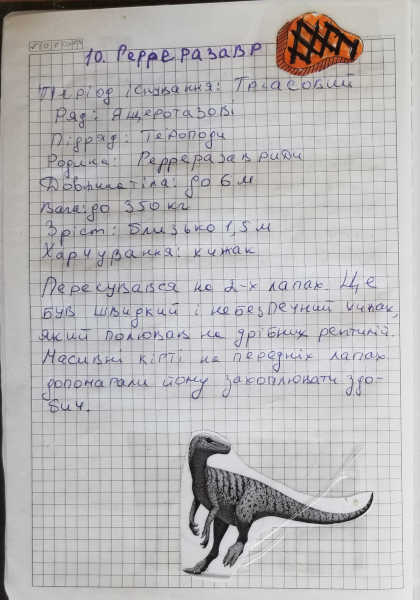 10. Герреразавр
Період існування: Тріасовий
Ряд: Ящеротазові
Підряд: Тероподи
Родина: Герреразавриди
Довжина тіла: до 6 м
Вага: до 350 кг
Зріст: Близько 1,5 м
Харчування: хижак
Пересувався на 2-х лапах. Це
був швидкий і небезпечний хижак,
який полював на дрібних рептилій.
Масивні кігті на передніх лапах
допомагали йому захоплювати здо-
бич.